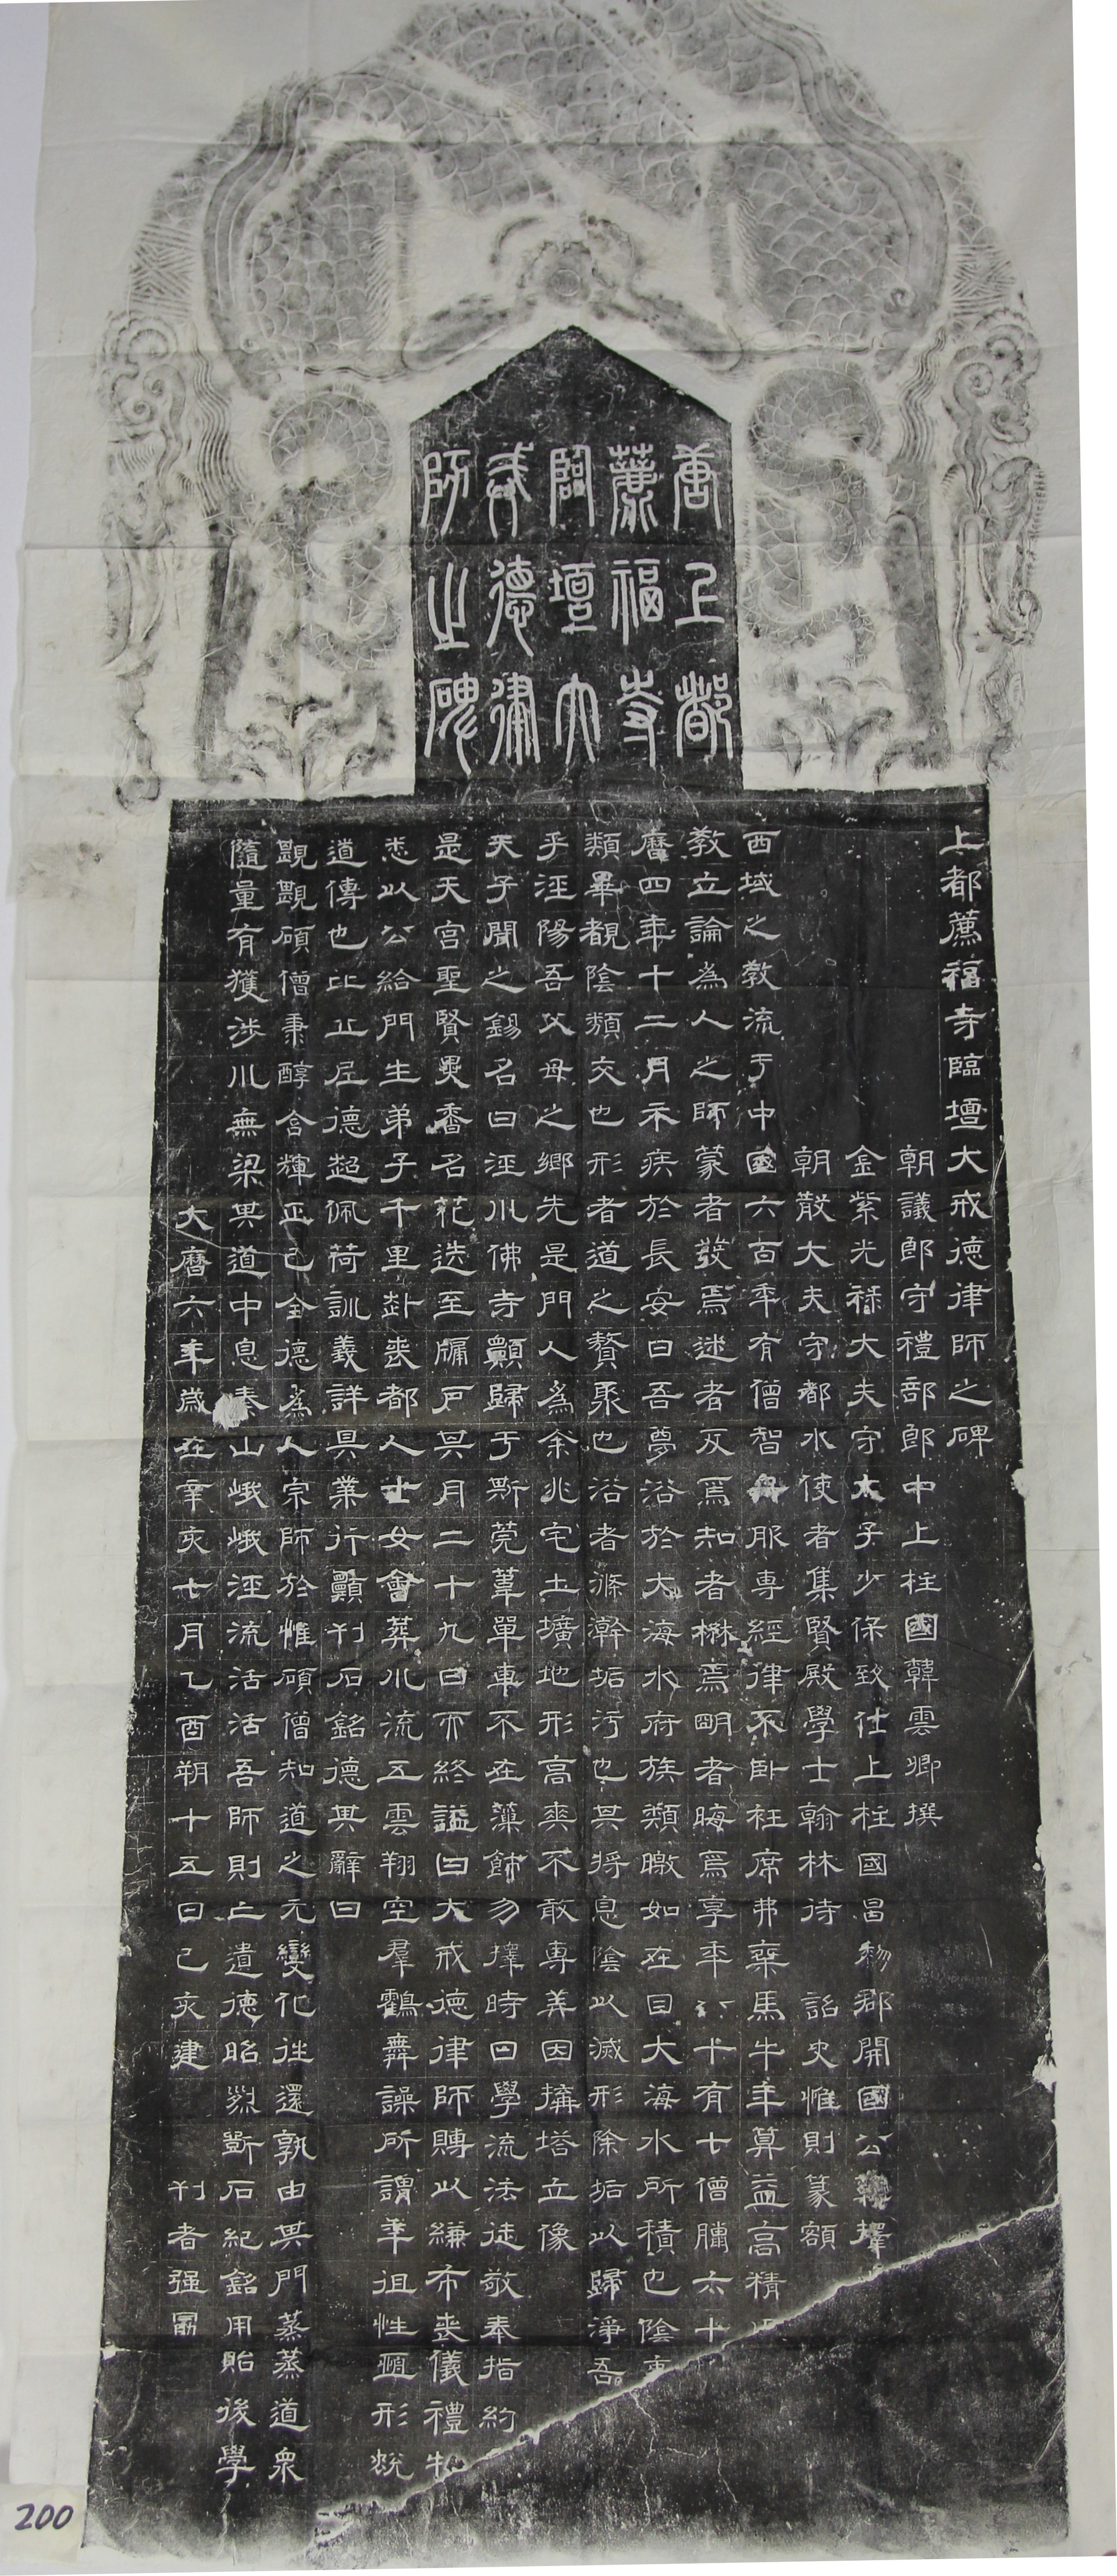 唐上都
薦福寺
臨壇大
戒德律
師之碑
上都薦福寺臨壇大戒德律師之碑
朝議郎守禮部郎中上柱國韓雲卿撰
金紫光祿大夫守太子少保致仕上柱國昌黎郡開國公韓擇
朝散大夫守都水使者集賢殿學士翰林待 詔史惟則篆額
西域之教流于中國六百年有僧智舟服專經律不臥衽席弗乘馬牛年算益高精
教立論為人之師蒙者發焉迷者反焉知者楙焉明者晦焉享年六十有七僧臘六十
曆四年十二月示疾於長安曰吾夢浴於大海水府族類曒如在目大海水所積也陰
類畢覩陰類交也形者道之贅聚也浴者滌澣垢污也其將息陰以滅形除垢以歸淨吾
乎涇陽吾父母之鄉先是門人為余兆宅土壙地形高爽不敢專美因搆塔立像
天子聞之錫名曰涇川佛寺顧歸于斯莞葦單車不在藻飾勿擇時日學流法徒敬奉指約
是天宮聖賢異香名花迭至牖戶其月二十九日示終謚曰大戒德律師賻以縑布喪儀禮物
悉以公給門生弟子千里赴喪都人士女會葬川流五雲翔空羣鶴舞譟所謂年徂性逦形蛻
道傳也比丘尼德超佩荷訓義詳具業行顧刊石銘德其辭曰
覬覬碩僧秉醇含輝正己全德為人宗師於惟碩僧知道之元變化往還孰由其門蒸蒸道衆
隨量有獲涉川無梁其道中息秦山峨峨涇流活活吾師則亡遺德昭烈斲石紀銘用貽後學
大曆六年歲在辛亥七月乙酉朔十五日己亥建 刊者强冪
200